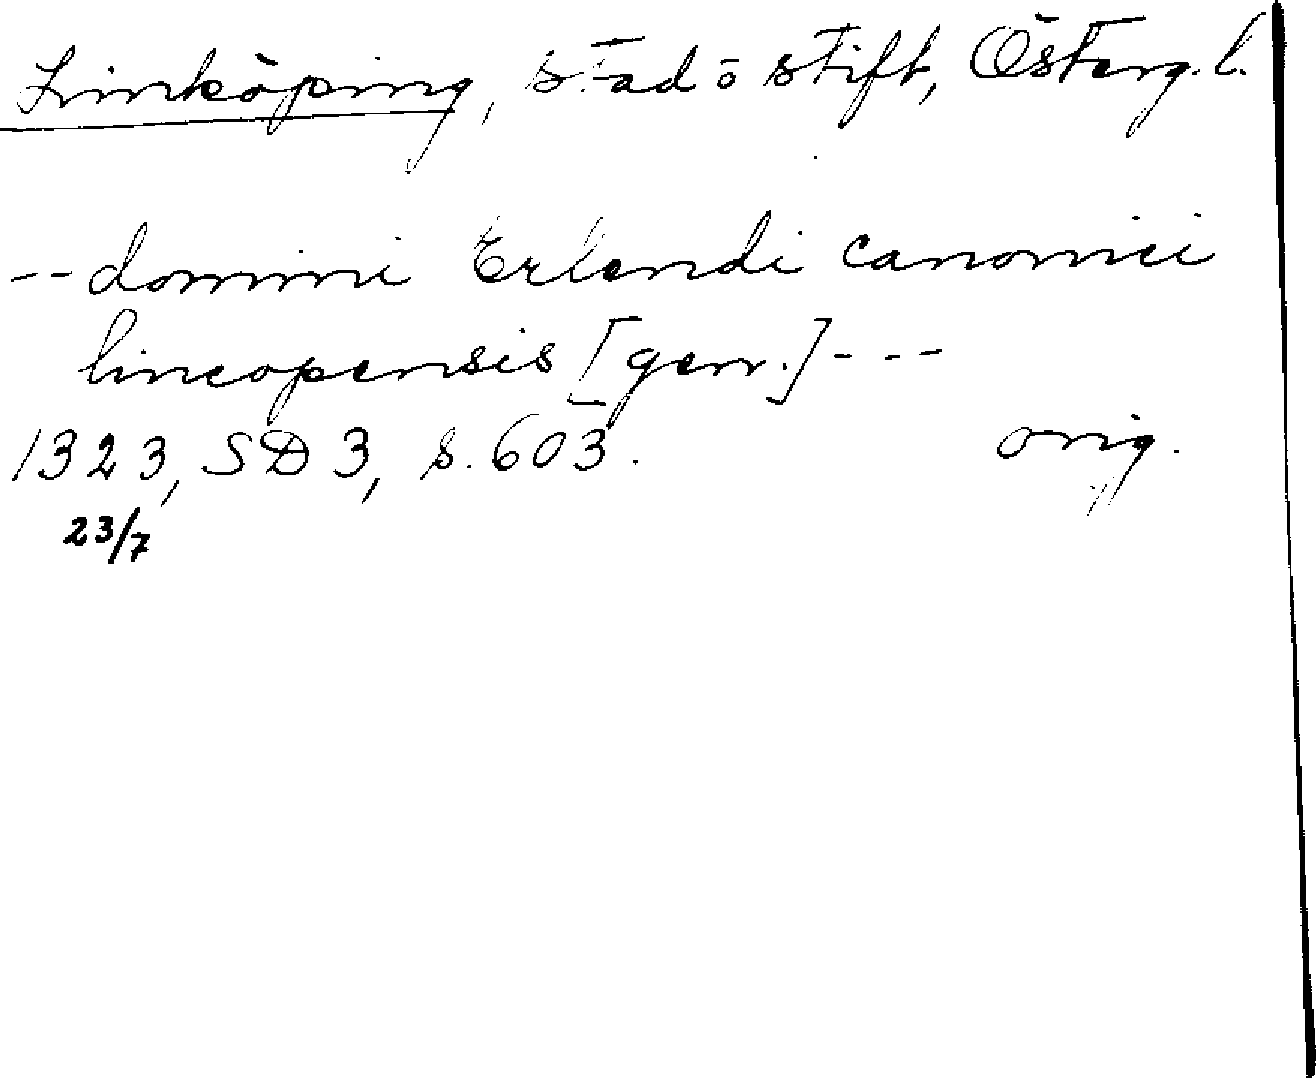 Linköping, stad o stift, Österg. l.
-- domini Erlendi canonici
lincopensis [gen.] - - -
1323, SD 3, s. 603. orig.
23/7